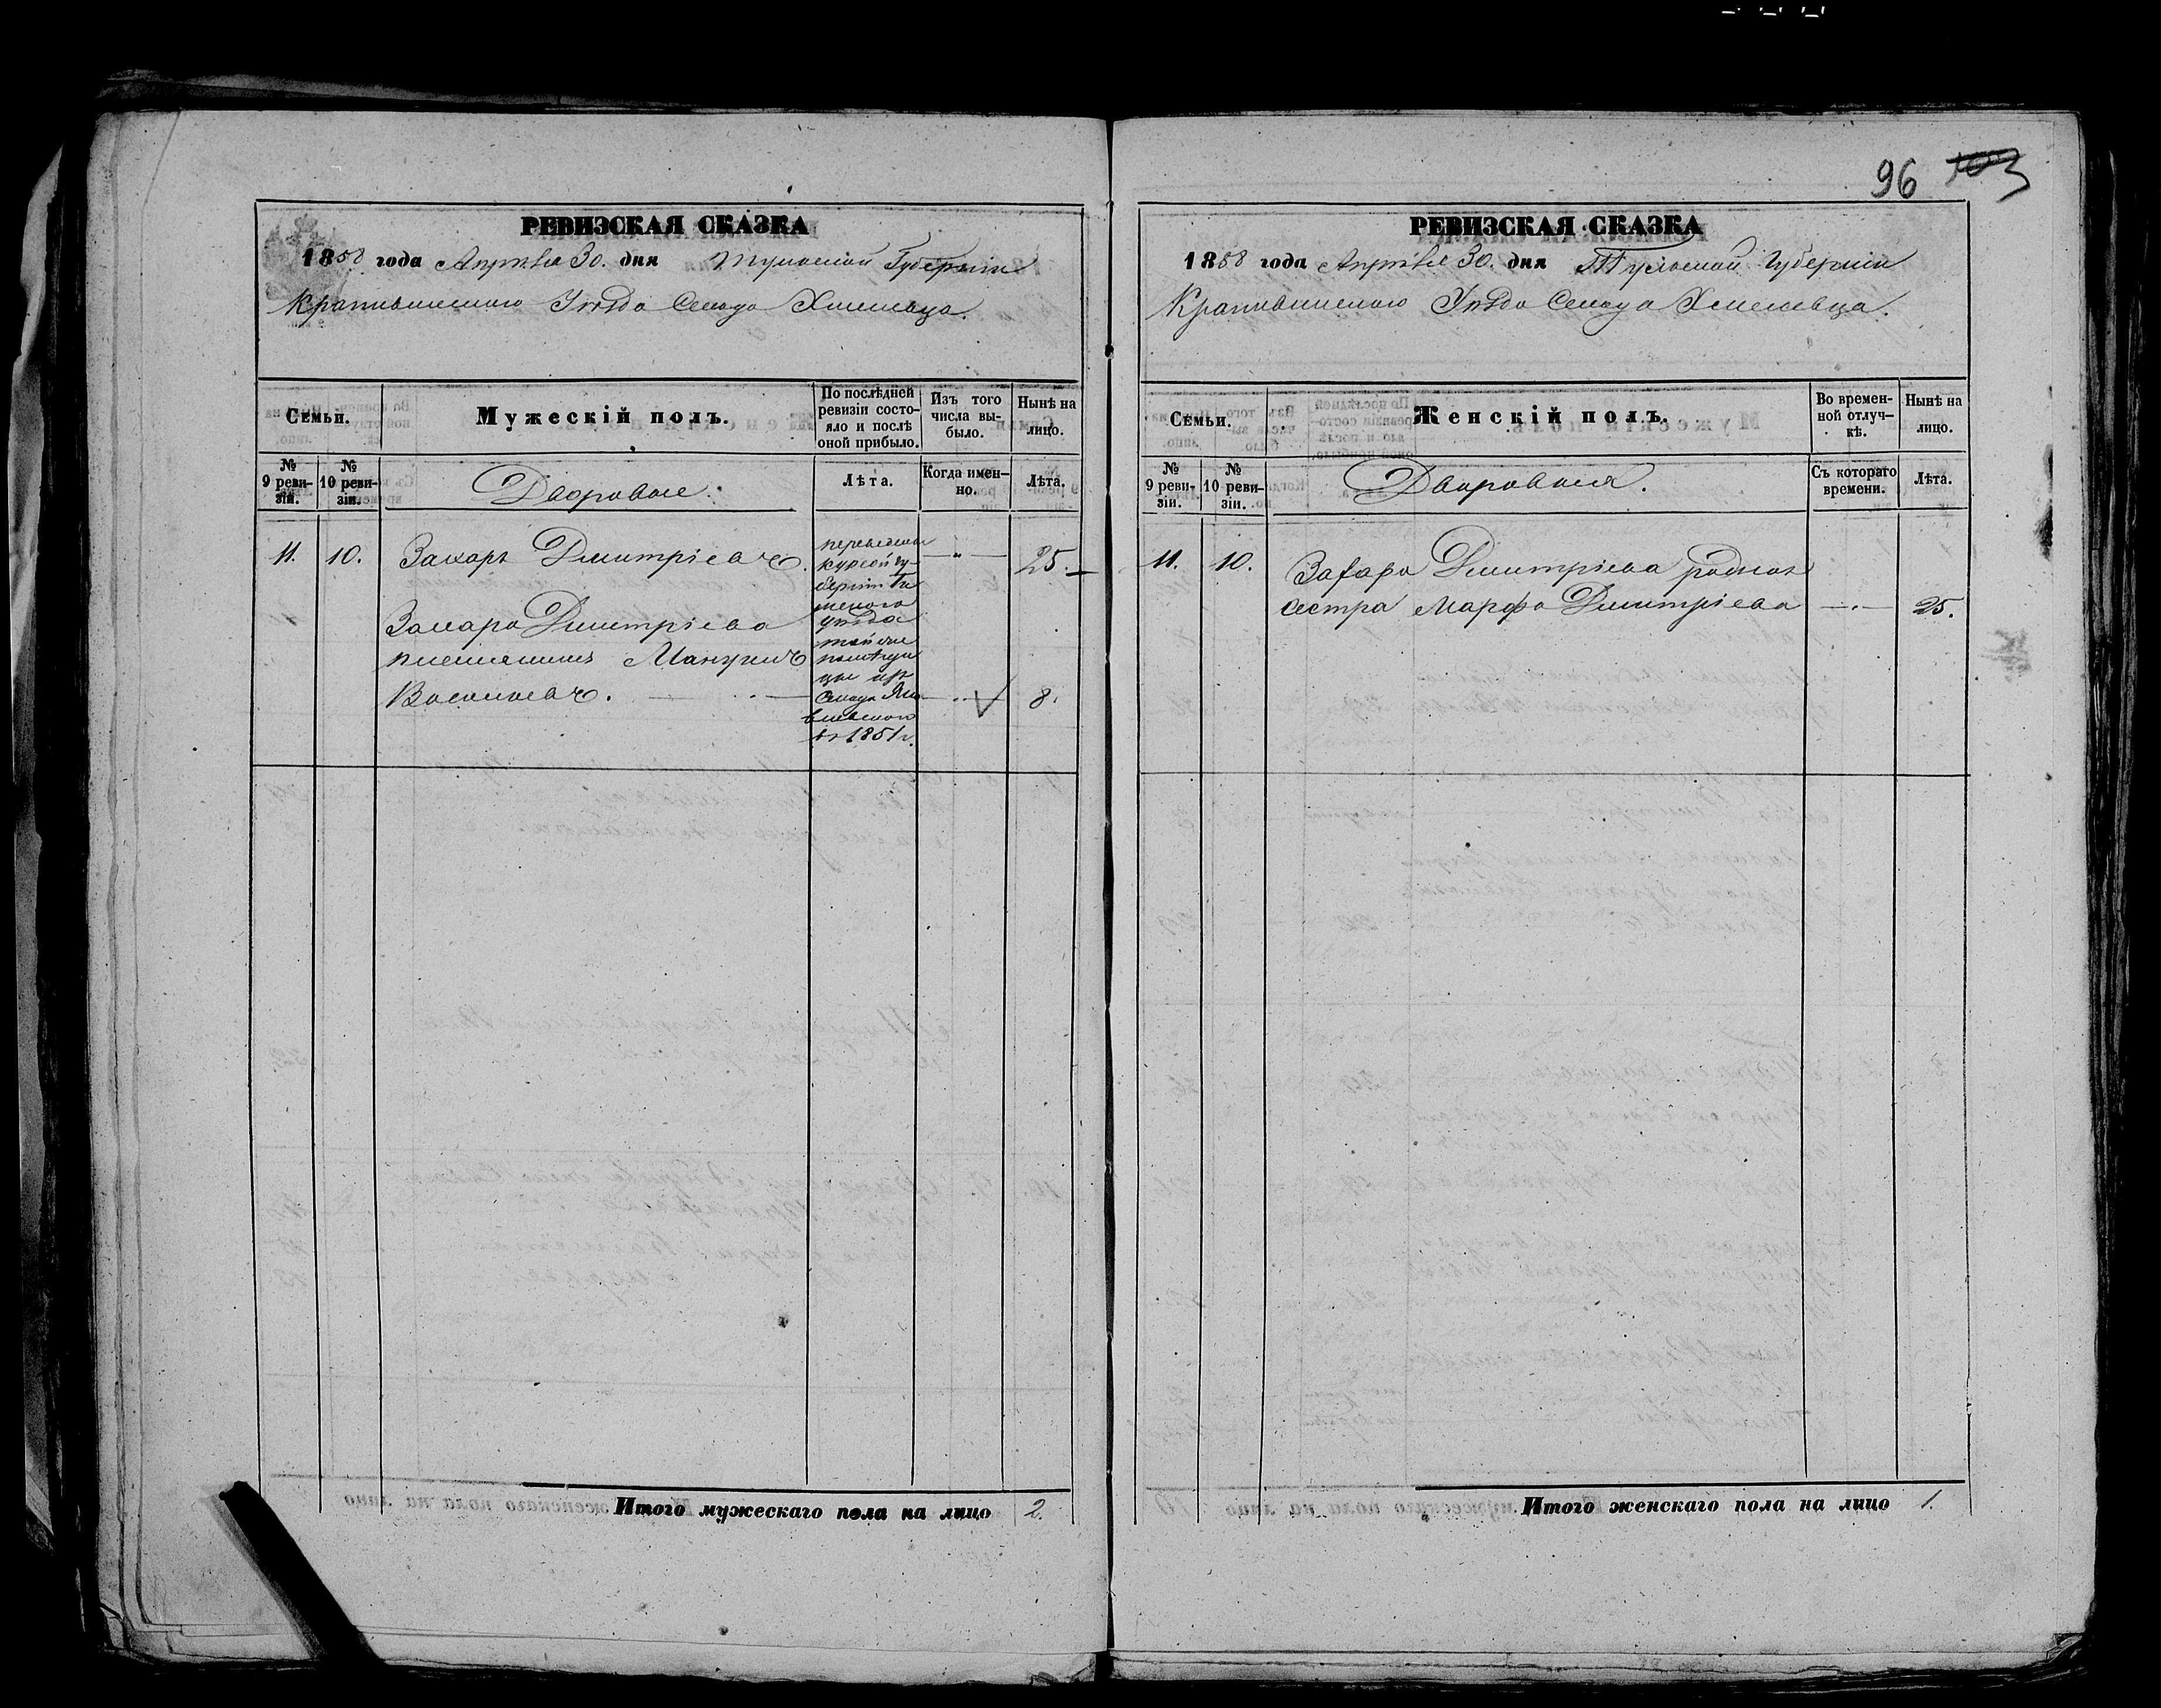 96 103
РЕВИЗСКАЯ СКАЗКА
1858 года Апрѣля 30. дня Тульской Губерніи
Крапивинскаго Уѣзда Сельца Хмелевца.
Семьи.
Мужескій полъ.
По послѣдней ревизіи состояло и послѣ оной прибыло.
Изъ того числа выбыло.
Нынѣ на лицо.
№ 9 ревизіи.
№ 10 ревизіи.
Дворовые.
Лѣта.
Когда именно.
Лѣта.
11. 10. Захаръ Дмитріевъ. 25.
Захара Дмитріева
племянникъ
Васильевъ. 8.
переведены
Курской гу-
берніи
уѣзда
той же
помѣщи
цы изъ
Сельца
въ 1851 г.
Итого мужескаго пола на лицо 2.
РЕВИЗСКАЯ СКАЗКА
1858 года Апрѣля 30. дня Тульской Губерніи
Крапивинскаго Уѣзда Сельца Хмелевца.
Семьи.
Женскій полъ.
Во временной отлучкѣ.
Нынѣ на лицо.
№ 9 ревизіи.
№ 10 ревизіи.
Дворовыя.
Съ котораго времени.
Лѣта.
11. 10. Захара Дмитріева родная
сестра Марфа Дмитріева 25.
Итого женскаго пола на лицо 1.